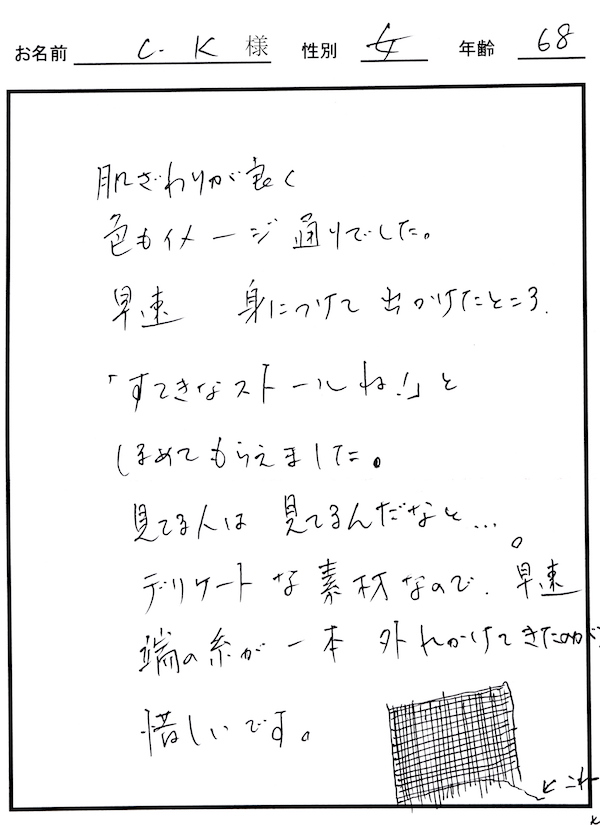 お名前 C. K 様 性別 女 年齢 68
肌ざわりが良く
色もイメージ通りでした。
早速 身につけて出かけたところ、
「すてきなストールね!」と
ほめてもらえました。
見てる人は 見てるんだなと…。
デリケートな素材なので、早速
端の糸が一本 外れかけてきたのが
惜しいです。
← これ